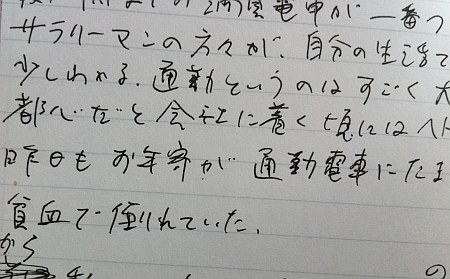 満員電車が一番つ
サラリーマンの方々が、自分の生
少しわかる。通勤というのはすごく大
都心だと会社に着く頃にはヘト
昨日もお年寄が通勤電車にたま
貧血で倒れていた。
から